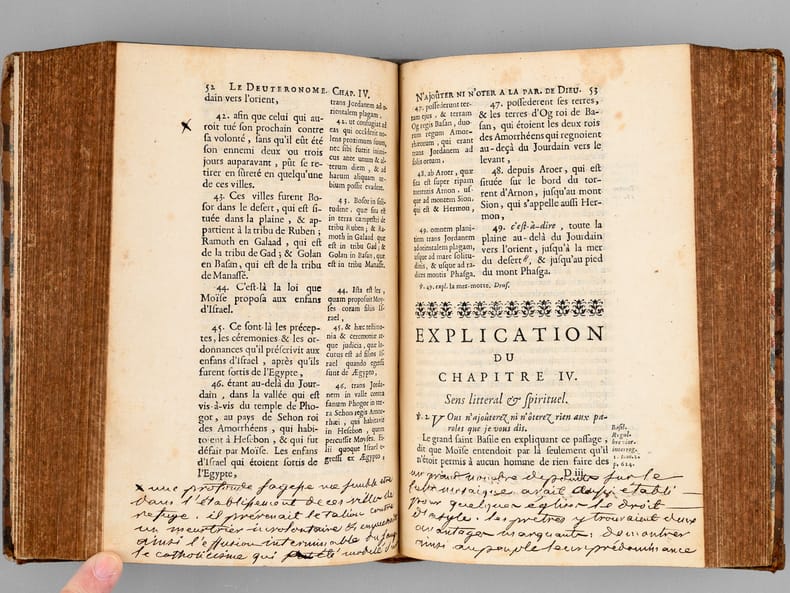 52 LE DEUTERONOME. CHAP. IV.
dain vers l'orient,
42. afin que celui qui au-
roit tué son prochain contre
sa volonté, sans qu'il eût été
son ennemi deux ou trois
jours auparavant, pût se re-
tirer en sûreté en quelqu'une
de ces villes.
43. Ces villes furent Bo-
sor dans le desert, qui est si-
tuée dans la plaine, & ap-
partient à la tribu de Ruben;
Ramoth en Galaad, qui est
de la tribu de Gad; & Golan
en Basan, qui est de la tribu
de Manassé.
44. C'est-là la loi que
Moïse proposa aux enfans
d'Israel.
45. Ce sont-là les précep-
tes, les ceremonies & les or-
donnances qu'il préscrivit aux
enfans d'Israel, après qu'ils
furent sortis de l'Egypte,
46. étant au-delà du Jour-
dain, dans la vallée qui est
vis-à-vis du temple de Pho-
gor, au pays de Sehon roi
des Amorrhéens, qui habi-
toient à Hesebon, & qui fut
défait par Moïse. Les enfans
d'Israel qui étoient sortis de
l'Egypte,
trans Jordanem ad o-
rientalem plagam,
42. ut confugiat ad
eas qui occiderit no-
lens proximum suum,
nec sibi fuerit inimi-
cus ante unum & al-
terum diem, & ad
harum aliquam ur-
bium possit evadere.
43. Bosor in soli-
tudine, quæ sita est
in terra campestri de
tribu Ruben; & Ra-
moth in Galaad quæ
est in tribu Gad; &
Golan in Basan, quæ
est in tribu Manasse.
44. Ista est lex,
quam proposuit Moy-
ses coram filiis Is-
rael,
45. & hæc testimo-
nia & ceremoniæ at-
que judicia, quæ lo-
cutus est ad filios Is-
rael quando egres-
si sunt de Ægypto,
46. trans Jorda-
nem in valle contra
fanum Phogor in ter-
ra Sehon regis Amor-
rhæi, qui habitavit
in Hesebon, quem
percussit Moyses. Fi-
lii quoque Israel e-
gressi ex Ægypto,
x une profonde sagesse me semble être
dans l'établissement de ces villes de
refuge. il prévenait le talion contre
un meurtrier involontaire &
ainsi l'effusion interminable du sang
le catholicisme qui modelé
N'AJOÛTER NI N'OTER A LA PAR. DE DIEU. 53
47. possederunt ter-
ram ejus, & terram
Og regis Basan, duo-
rum regum Amor-
rhæorum, qui erant
trans Jordanem ad
solis ortum,
48. ab Aroer, quæ
sita est super ripam
torrentis Arnon, us-
que ad montem Sion,
qui est & Hermon,
49. omnem plani-
tiem trans Jordanem
ad orientalem plagam,
usque ad mare solitu-
dinis, & usque ad ra-
dices montis Phasga.
47. possederent ses terres,
& les terres d'Og roi de Ba-
san, qui étoient les deux rois
des Amorrhéens qui regnoient
au-deçà du Jourdain vers le
levant,
48. depuis Aroer, qui est
située sur le bord du tor-
rent d'Arnon, jusqu'au mont
Sion, qui s'appelle aussi Her-
mon,
49. c'est-à-dire, toute la
plaine au-delà du Jourdain
vers l'orient, jusqu'à la mer
du desert, & jusqu'au pied
du mont Phasga.
℣. 49. expl. la mer-morte. Drus.
EXPLICATION
DU
CHAPITRE IV.
Sens litteral & spirituel.
℣. 2. VOus n'ajoûterez ni n'ôterez rien aux pa-
roles que je vous dis.
Le grand saint Basile en expliquant ce passage,
dit que Moïse entendoit par là seulement qu'il
n'étoit permis à aucun homme de rien faire des
Basil.
Regul.
brevior.
interrog.
p. 624.
D iij
un grand nombre de points sur le
culte mosaique avait établi
pour quelques eglises le droit
d'asyle: les prêtres y trouvaient deux
avantages marquants: demontrer
ainsi au peuple leur prédominance